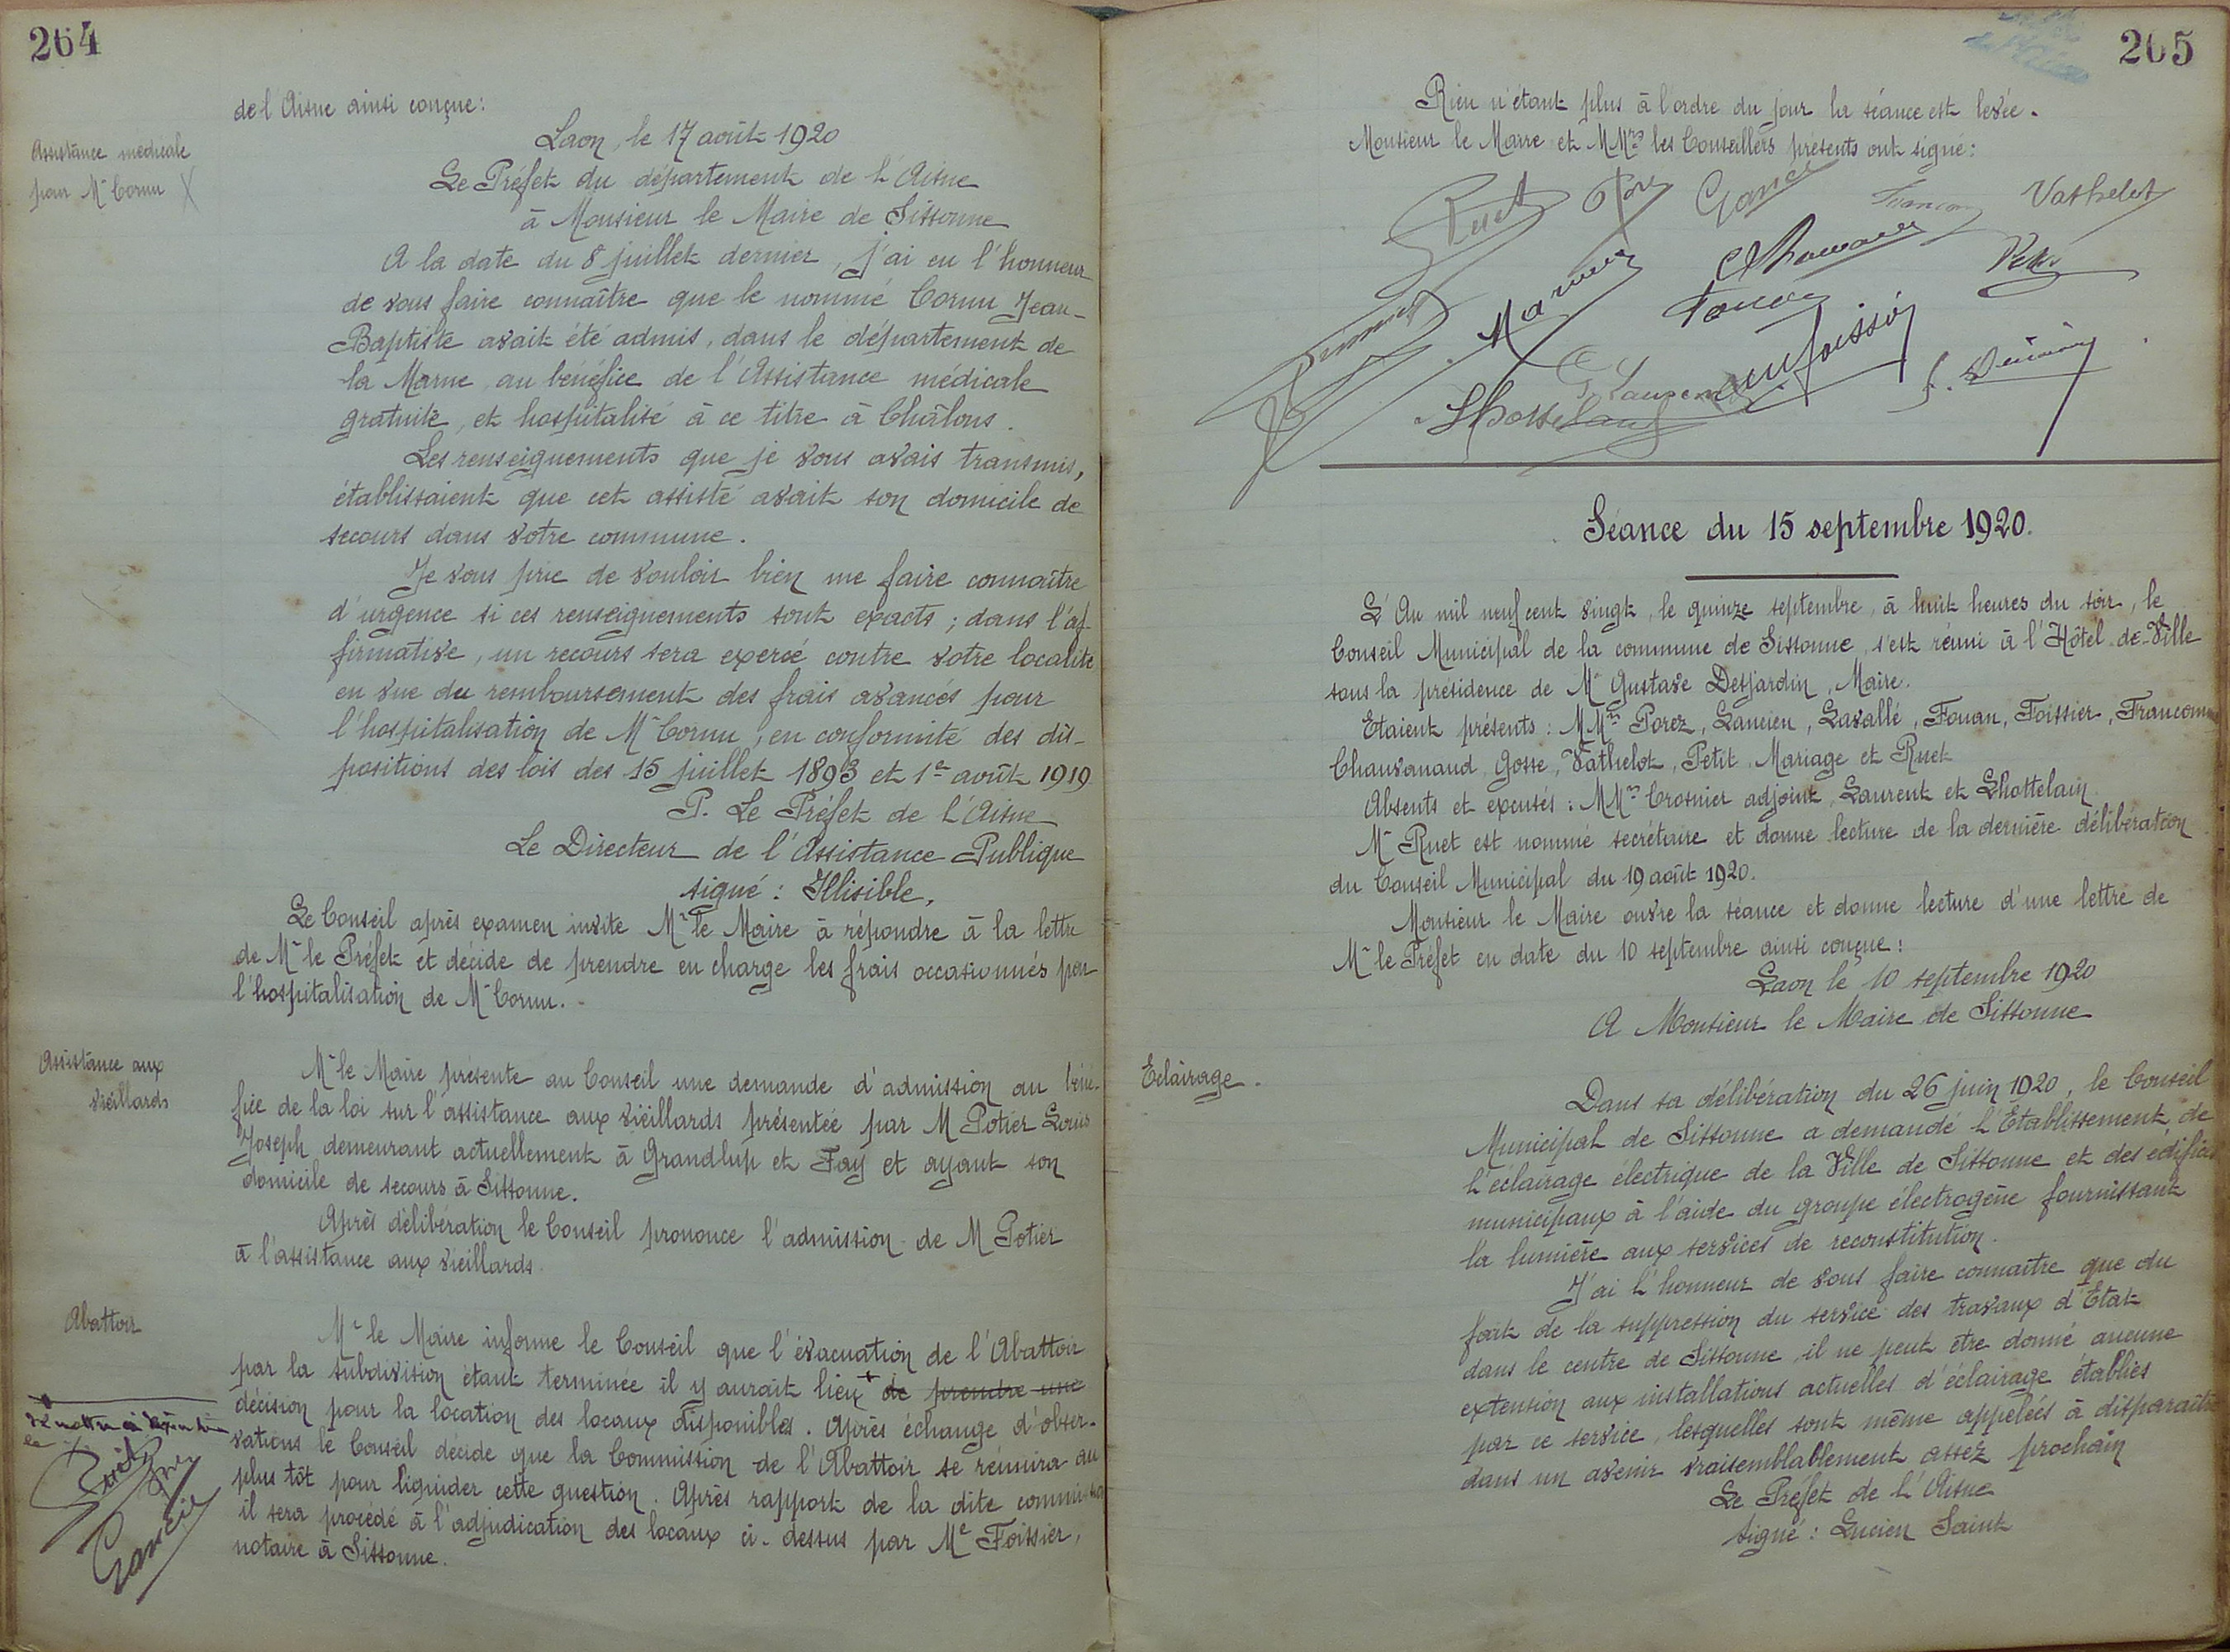 264
de l'Aisne ainsi conçue :
Assistance médicale
pour Mr Cornu X
Laon, le 17 août 1920
Le Préfet du département de l'Aisne
à Monsieur le Maire de Sissonne
A la date du 8 juillet dernier, j'ai eu l'honneur
de vous faire connaître que le nommé Cornu Jean-
Baptiste avait été admis, dans le département de
la Marne, au bénéfice de l'Assistance médicale
gratuite, et hospitalisé à ce titre à Châlons.
Les renseignements que je vous avais transmis,
établissaient que cet assisté avait son domicile de
secours dans votre commune.
Je vous prie de vouloir bien me faire connaître
d'urgence si ces renseignements sont exacts ; dans l'af-
firmative, un recours sera exercé contre votre localité
en vue du remboursement des frais avancés pour
l'hospitalisation de Mr Cornu, en conformité des dis-
positions des lois des 15 juillet 1893 et 1er août 1919
P. Le Préfet de l'Aisne
Le Directeur de l'Assistance Publique
signé : Illisible.
Le Conseil après examen invite Mr le Maire à répondre à la lettre
de Mr le Préfet et décide de prendre en charge les frais occasionnés pour
l'hospitalisation de Mr Cornu.
Assistance aux
vieillards
Mr le Maire présente au Conseil une demande d'admission au béné-
fice de la loi sur l'assistance aux vieillards présentée par M Potier Louis
Joseph demeurant actuellement à Grandlup et Fay et ayant son
domicile de secours à Sissonne.
Après délibération le Conseil prononce l'admission de M Potier
à l'assistance aux vieillards.
Abattoir
Mr le Maire informe le Conseil que l'évacuation de l'Abattoir
par la subdivision étant terminée il y aurait lieu + de prendre une
décision pour la location des locaux disponibles. Après échange d'obser-
vations le Conseil décide que la Commission de l'Abattoir se réunira au
plus tôt pour liquider cette question. Après rapport de la dite commission
il sera procédé à l'adjudication des locaux ci-dessus par Me Foissier,
notaire à Sissonne.
+
de mettre à exécution
la
Ruet
265
Rien n'étant plus à l'ordre du jour la séance est levée.
Monsieur le Maire et MMrs les Conseillers présents ont signé :
Ruet Porez Gosse Francom Vathelot
Mariage Chauvanaud Petit
Fouan
G Laurent Foissier
Lhottelain
Séance du 15 septembre 1920.
L'An mil neuf cent vingt, le quinze septembre, à huit heures du soir, le
Conseil Municipal de la commune de Sissonne, s'est réuni à l'Hôtel-de-Ville
sous la présidence de Mr Gustave Desjardin, Maire.
Etaient présents : MMrs Porez, Lancien, Lavallé, Fouan, Foissier, Francomme
Chauvanaud, Gosse, Vathelot, Petit, Mariage et Ruet
Absents et excusés : MMrs Crosnier adjoint, Laurent et Lhottelain
Mr Ruet est nommé secrétaire et donne lecture de la dernière délibération
du Conseil Municipal du 19 août 1920.
Monsieur le Maire ouvre la séance et donne lecture d'une lettre de
Mr le Préfet en date du 10 septembre ainsi conçue :
Laon le 10 septembre 1920
A Monsieur le Maire de Sissonne
Eclairage.
Dans sa délibération du 26 juin 1920, le Conseil
Municipal de Sissonne a demandé l'Etablissement de
l'éclairage électrique de la Ville de Sissonne et des édifices
municipaux à l'aide du groupe électrogène fournissant
la lumière aux services de reconstitution.
J'ai l'honneur de vous faire connaître que du
fait de la suppression du service des travaux d'Etat
dans le centre de Sissonne, il ne peut être donné aucune
extension aux installations actuelles d'éclairage établies
par ce service, lesquelles sont même appelées à disparaître
dans un avenir vraisemblablement assez prochain
Le Préfet de l'Aisne
signé : Lucien Saint